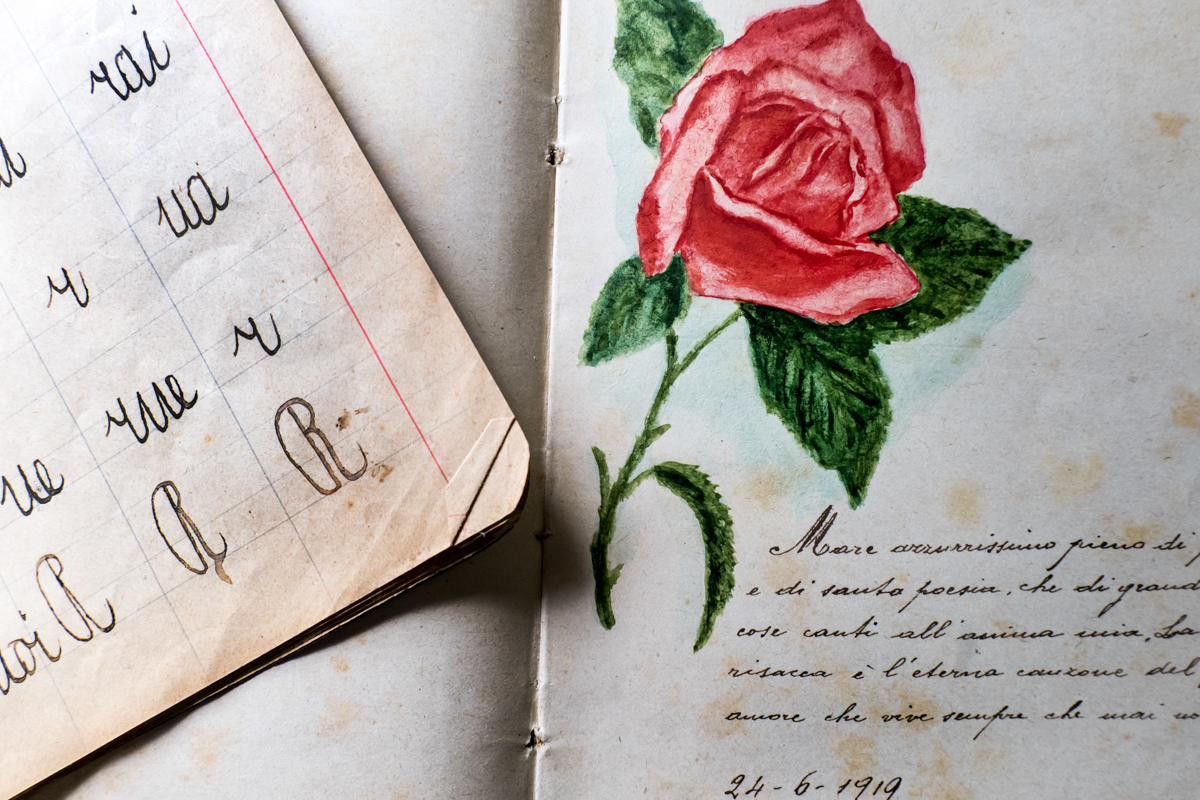 rai
ua
r
r
rue
ue
R
R
R
Mare azzurrissimo pieno di
e di santa poesia, che di grand
cose canti all'anima mia, La
risacca è l'eterna canzone del
amore che vive sempre che mai
24-6-1919